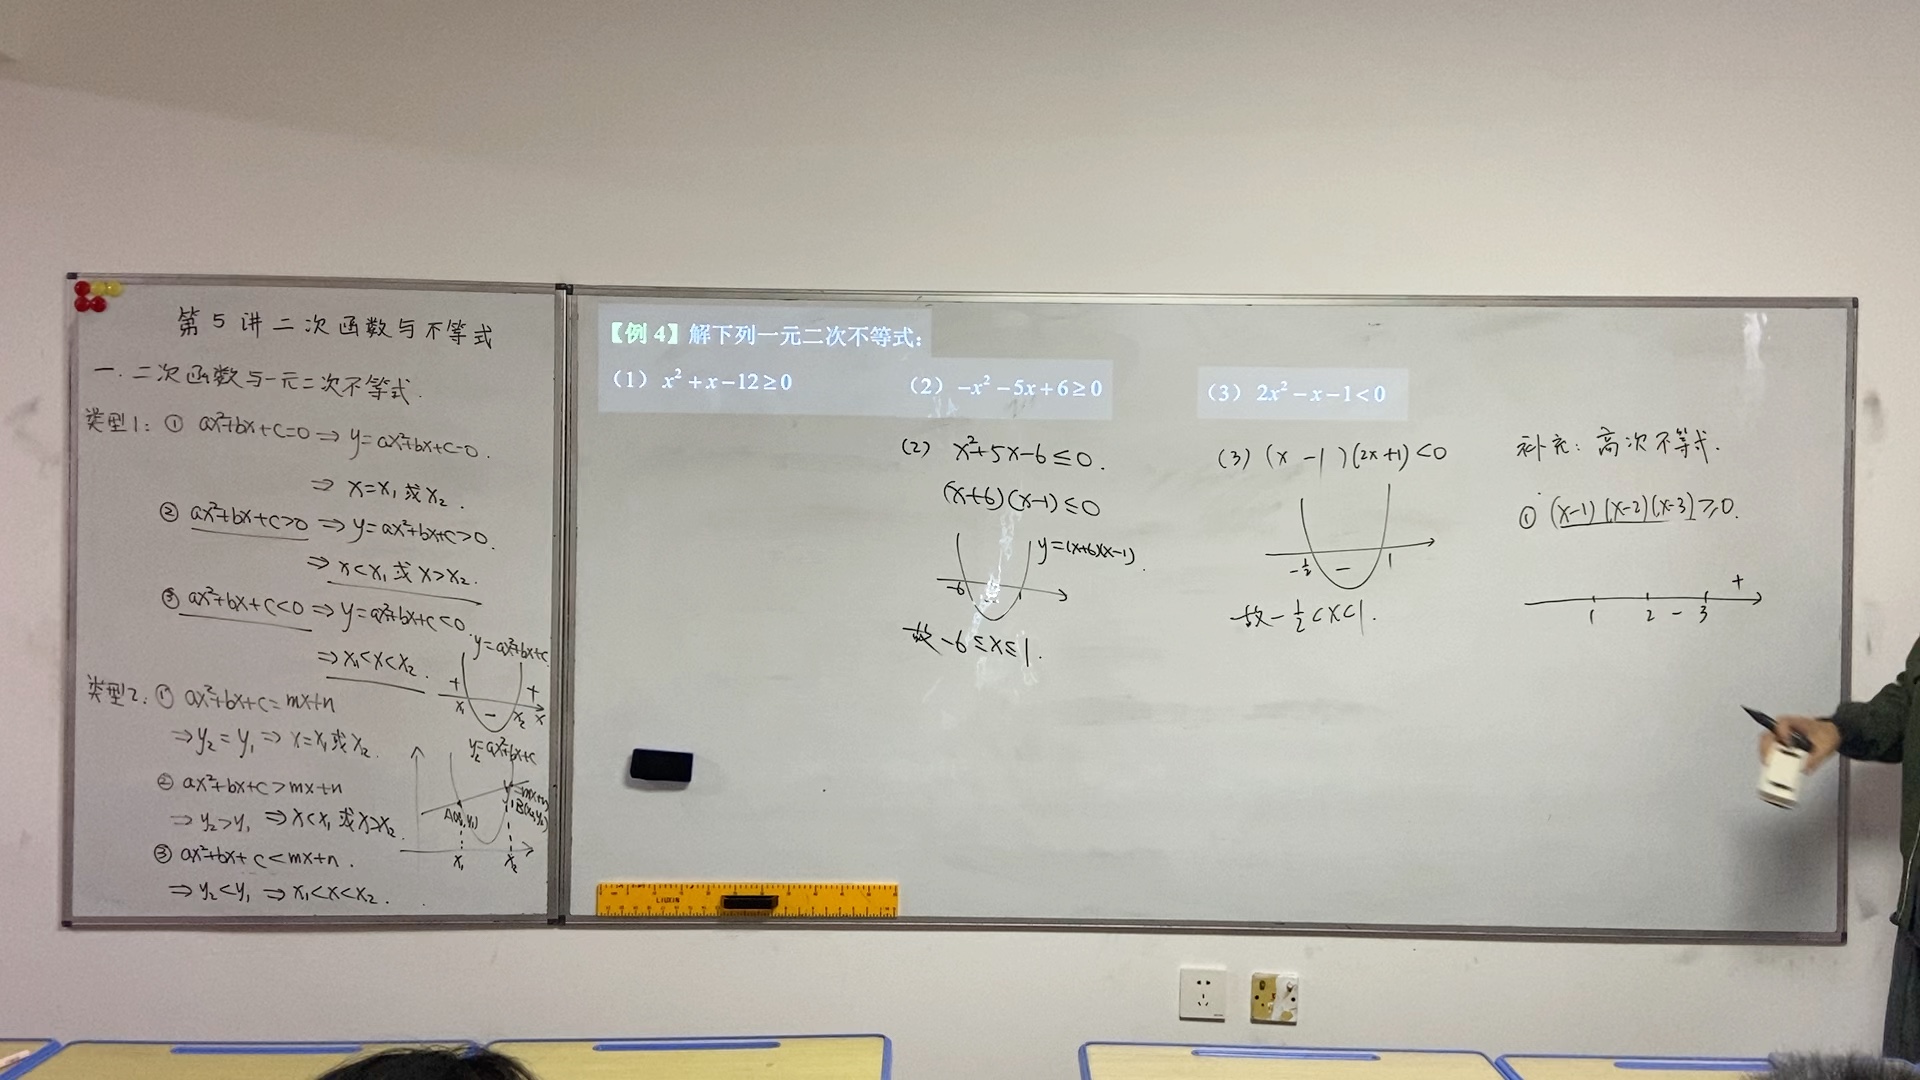 第5讲二次函数与不等式
一.二次函数与一元二次不等式.
类型1: ① ax²+bx+c=0 ⇒ y=ax²+bx+c=0.
⇒ x=x₁或x₂.
② ax²+bx+c>0 ⇒ y=ax²+bx+c>0.
⇒ x<x₁或x>x₂.
③ ax²+bx+c<0 ⇒ y=ax²+bx+c<0.
⇒ x₁<x<x₂.
y=ax²+bx+c
+ +
x₁ − x₂ x
类型2: ① ax²+bx+c=mx+n
⇒ y₂=y₁ ⇒ x=x₁或x₂.
② ax²+bx+c>mx+n
⇒ y₂>y₁ ⇒ x<x₁或x>x₂.
③ ax²+bx+c<mx+n.
⇒ y₂<y₁ ⇒ x₁<x<x₂.
y₂=ax²+bx+c
x₁ x₂
【例 4】解下列一元二次不等式:
(1) x²+x−12≥0 (2) −x²−5x+6≥0 (3) 2x²−x−1<0
(2) x²+5x−6≤0.
(x+6)(x−1)≤0
y=(x+6)(x−1).
−6 − 1
故−6≤x≤1.
(3) (x−1)(2x+1)<0
−½ − 1
故−½<x<1.
补充: 高次不等式.
① (x−1)(x−2)(x−3)≥0.
+
1 2 − 3
LIUXIN